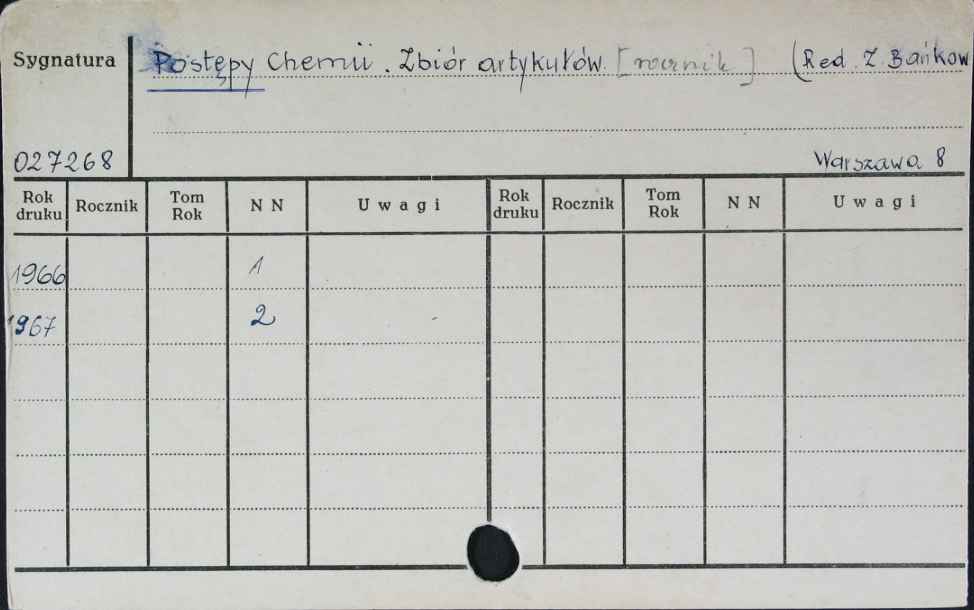 Sygnatura Postępy Chemii. Zbiór artykułów. [rocznik] (Red. Z. Bańkow
027268 Warszawa 8
Rok druku Rocznik Tom Rok N N Uwagi Rok druku Rocznik Tom Rok N N Uwagi
1966 1
1967 2